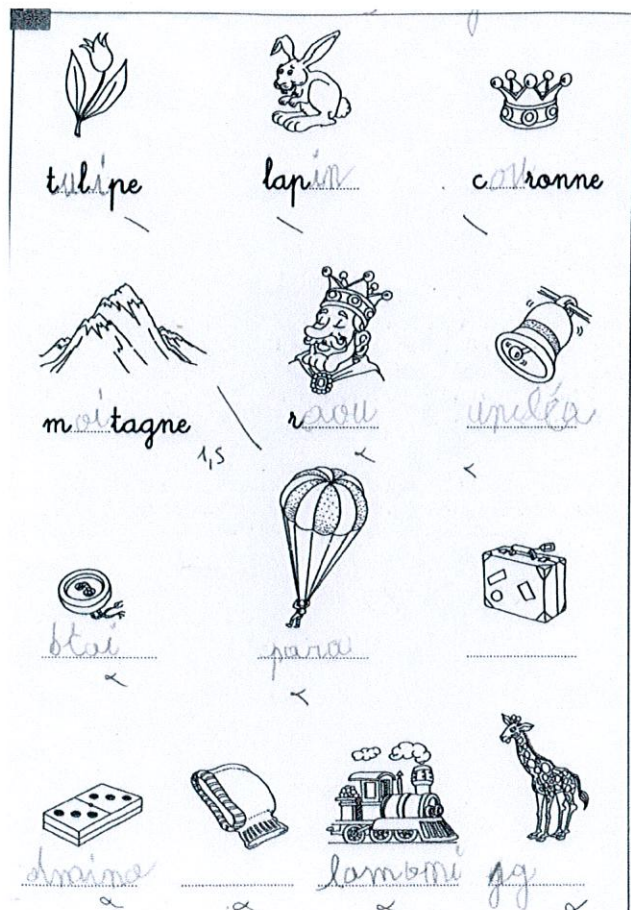 tulipe lapin couronne
moitagne raou unuléa
1,5
btoi para
dmino lamomi gg